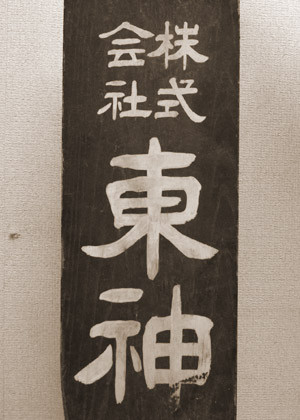 株式
会社
東神